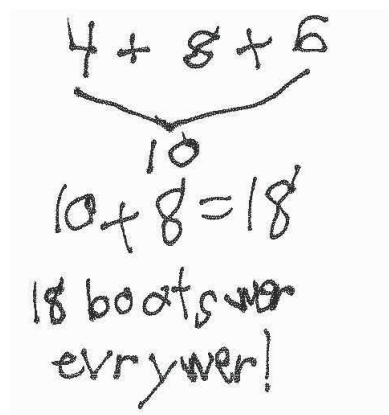 4 + 8 + 6
10
10 + 8 = 18
18 boats wer
evrywer!